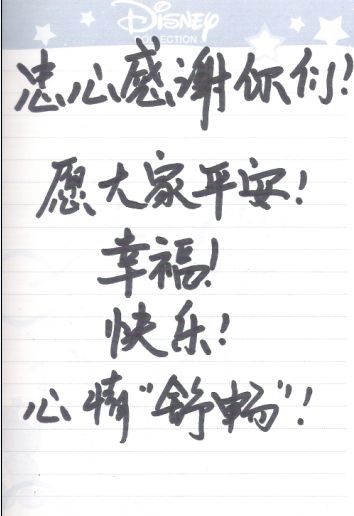 Disney
COLLECTION
忠心感谢你们!
愿大家平安!
幸福!
快乐!
心情“舒畅”!